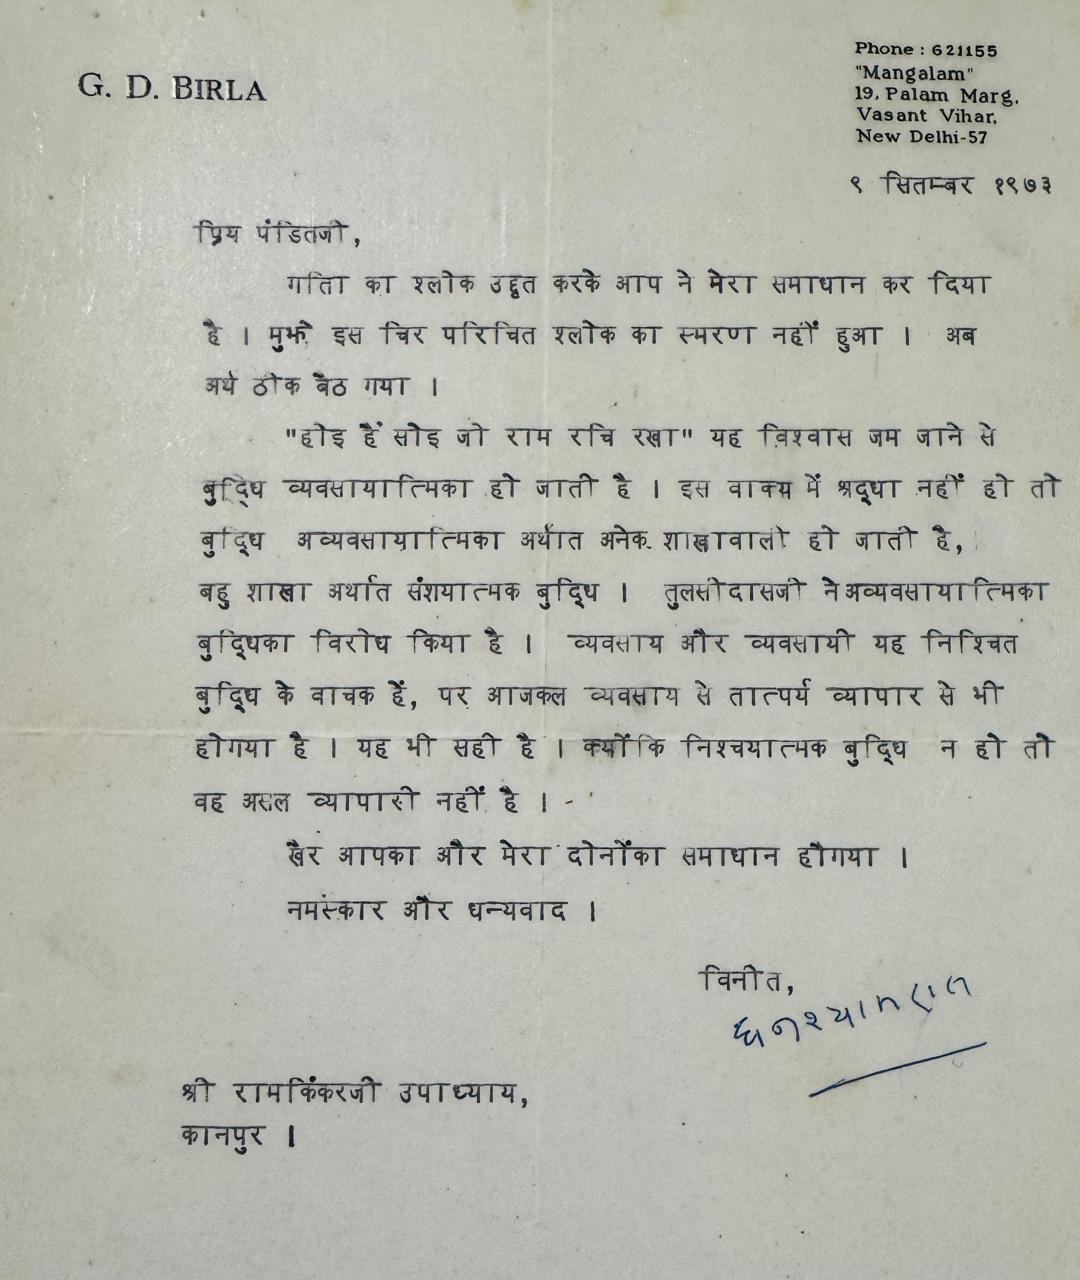 G. D. BIRLA
Phone : 621155
"Mangalam"
19, Palam Marg,
Vasant Vihar,
New Delhi-57
९ सितम्बर १९७३
प्रिय पंडितजी,
गीता का श्लोक उद्धृत करके आप ने मेरा समाधान कर दिया
है । मुझे इस चिर परिचित श्लोक का स्मरण नहीं हुआ । अब
अर्थ ठीक बैठ गया ।
"होइ हैं सोइ जो राम रचि रखा" यह विश्वास जम जाने से
बुद्धि व्यवसायात्मिका हो जाती है । इस वाक्य में श्रद्धा नहीं हो तो
बुद्धि अव्यवसायात्मिका अर्थात अनेक शाखावाली हो जाती है,
बहु शाखा अर्थात संशयात्मक बुद्धि । तुलसीदासजी ने अव्यवसायात्मिका
बुद्धिका विरोध किया है । व्यवसाय और व्यवसायी यह निश्चित
बुद्धि के वाचक हैं, पर आजकल व्यवसाय से तात्पर्य व्यापार से भी
होगया है । यह भी सही है । क्योंकि निश्चयात्मक बुद्धि न हो तो
वह असल व्यापारी नहीं है । -
खैर आपका और मेरा दोनोंका समाधान होगया ।
नमस्कार और धन्यवाद ।
विनीत,
घनश्यामदास
श्री रामकिंकरजी उपाध्याय,
कानपुर ।